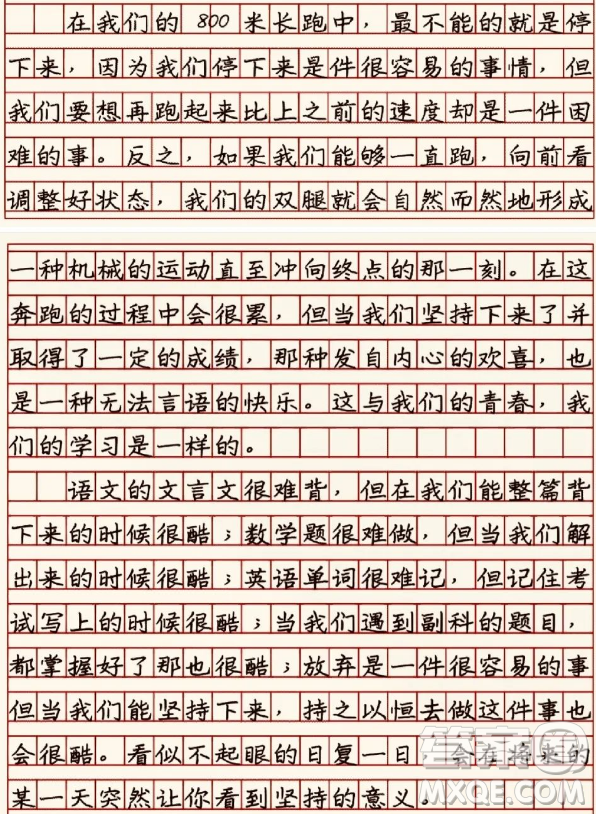 在我们的800米长跑中，最不能的就是停
下来，因为我们停下来是件很容易的事情，但
我们要想再跑起来比上之前的速度却是一件困
难的事。反之，如果我们能够一直跑，向前看
调整好状态，我们的双腿就会自然而然地形成
一种机械的运动直至冲向终点的那一刻。在这
奔跑的过程中会很累，但当我们坚持下来了并
取得了一定的成绩，那种发自内心的欢喜，也
是一种无法言语的快乐。这与我们的青春，我
们的学习是一样的。
语文的文言文很难背，但在我们能整篇背
下来的时候很酷；数学题很难做，但当我们解
出来的时候很酷；英语单词很难记，但记住考
试写上的时候很酷；当我们遇到副科的题目，
都掌握好了那也很酷；放弃是一件很容易的事
但当我们能坚持下来，持之以恒去做这件事也
会很酷。看似不起眼的日复一日 会在将来的
某一天突然让你看到坚持的意义。
答案圈
MXQE.COM